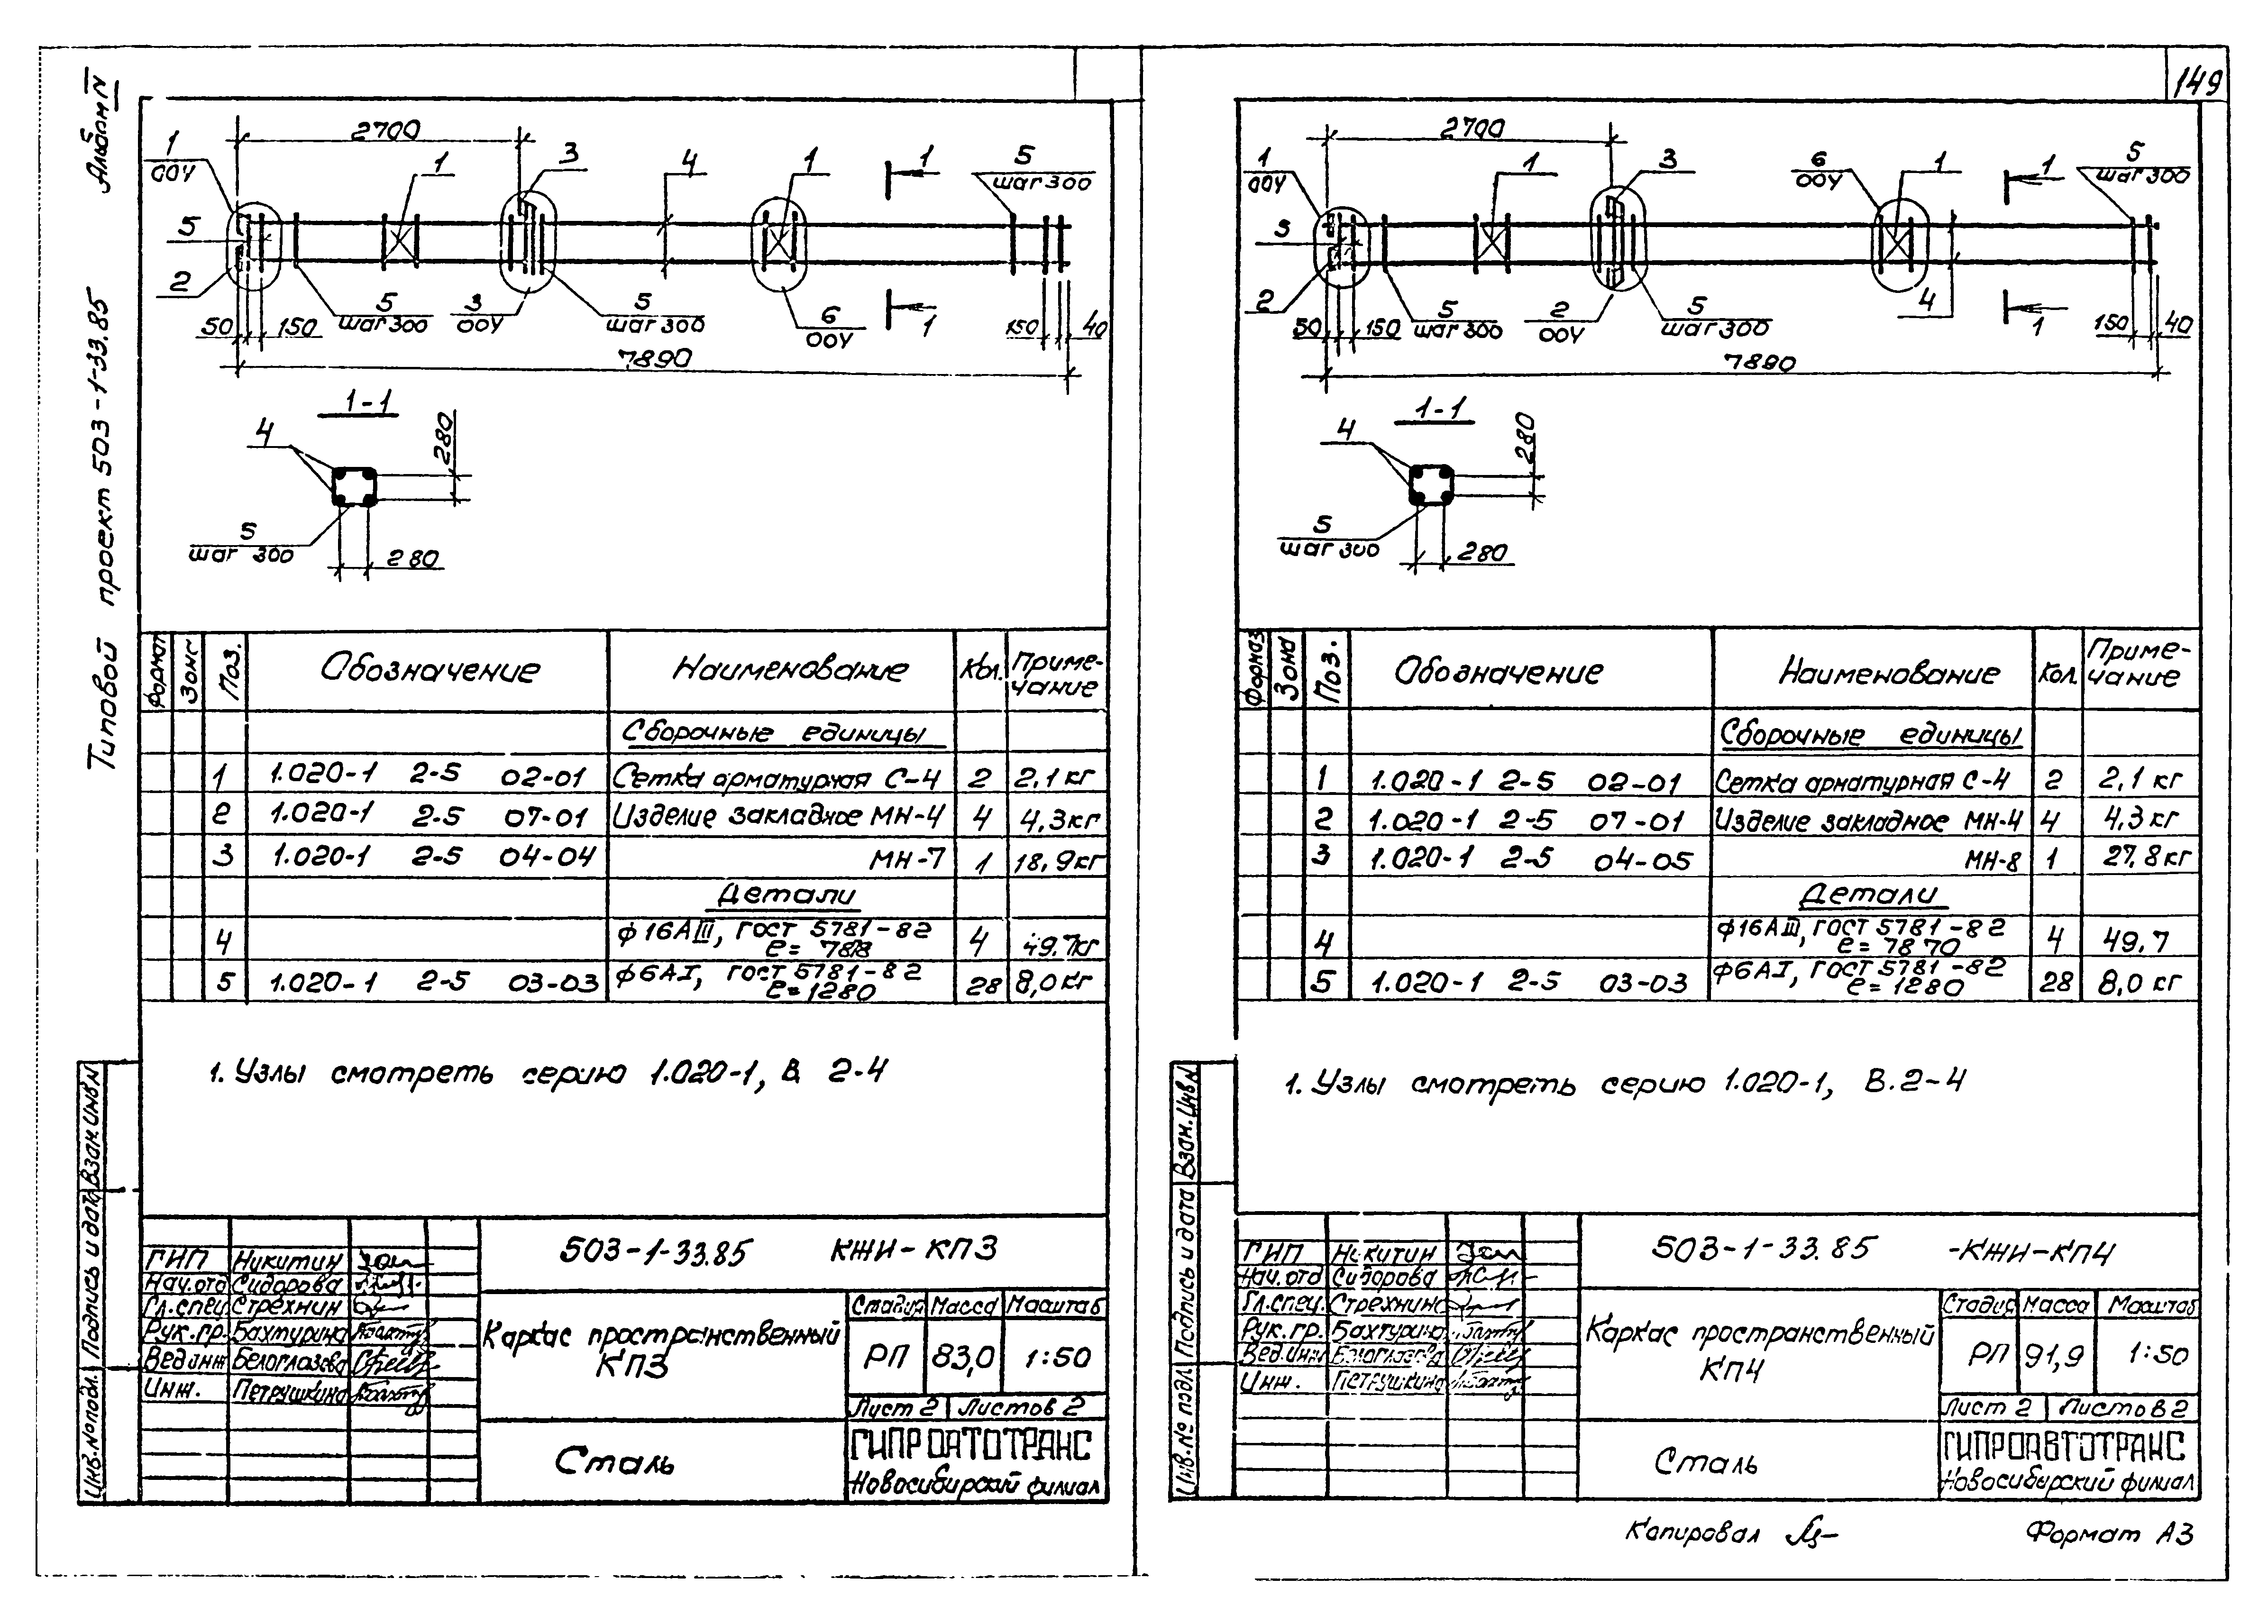 149
Альбом 5
Типовой проект 503-1-33.85
2700
1
ООУ
1
3
4
1
1
5
шаг 300
5
2
50
150
5
шаг 300
3
ООУ
5
шаг 300
6
ООУ
1
150
40
7890
1-1
4
280
5
шаг 300
280
Формат
Поз.
Обозначение
Наименование
Кол.
Приме-
чание
Сборочные единицы
1 1.020-1 2-5 02-01 Сетка арматурная С-4 2 2,1 кг
2 1.020-1 2-5 07-01 Изделие закладное МН-4 4 4,3кг
3 1.020-1 2-5 04-04 МН-7 1 18,9кг
Детали
4 ф16АIII, ГОСТ 5781-82 4 49.7кг
5 1.020-1 2-5 03-03 ф6АI, ГОСТ 5781-82 28 8,0кг
ℓ=1280
1. Узлы смотреть серию 1.020-1, В 2-4
Взам. Инв N
Подпись и дата
Инв. № подл.
503-1-33.85 КЖИ-КП3
ГИП Никитин
Нач.отд Сидорова
Гл.спец Стрехнин
Рук.гр. Бахтурина
Вед инж Белоглазова
Инж. Петрушкина
Каркас пространственный
КП3
Стадия Масса Масштаб
РП 83,0 1:50
Лист 2 Листов 2
Сталь
ГИПРОАТОТРАНС
Новосибирский филиал
2700
1
ООУ
1
3
6
ООУ
1
1
5
шаг 300
2
50
150
5
шаг 300
2
ООУ
5
шаг 300
4
1
150
40
7890
1-1
4
280
5
шаг 300
280
Зона
Поз.
Обозначение
Наименование
Кол.
Приме-
чание
Сборочные единицы
1 1.020-1 2-5 02-01 Сетка арматурная С-4 2 2,1 кг
2 1.020-1 2-5 07-01 Изделие закладное МН-4 4 4,3 кг
3 1.020-1 2-5 04-05 МН-8 1 27,8кг
Детали
4 ф16АIII, ГОСТ 5781-82 4 49,7
ℓ=7870
5 1.020-1 2-5 03-03 ф6АI, ГОСТ 5781-82 28 8,0 кг
ℓ=1280
1. Узлы смотреть серию 1.020-1, В.2-4
Взам. Инв N
Подпись и дата
Инв. № подл.
503-1-33.85 -КЖИ-КП4
ГИП Никитин
Нач.отд Сидорова
Гл.спец. Стрехнин
Рук.гр. Бахтурина
Вед.инж Белоглазова
Инж. Петрушкина
Каркас пространственный
КП4
Стадия Масса Масштаб
РП 91,9 1:50
Лист 2 Листов 2
Сталь
ГИПРОАВТОТРАНС
Новосибирский филиал
Копировал
Формат А3